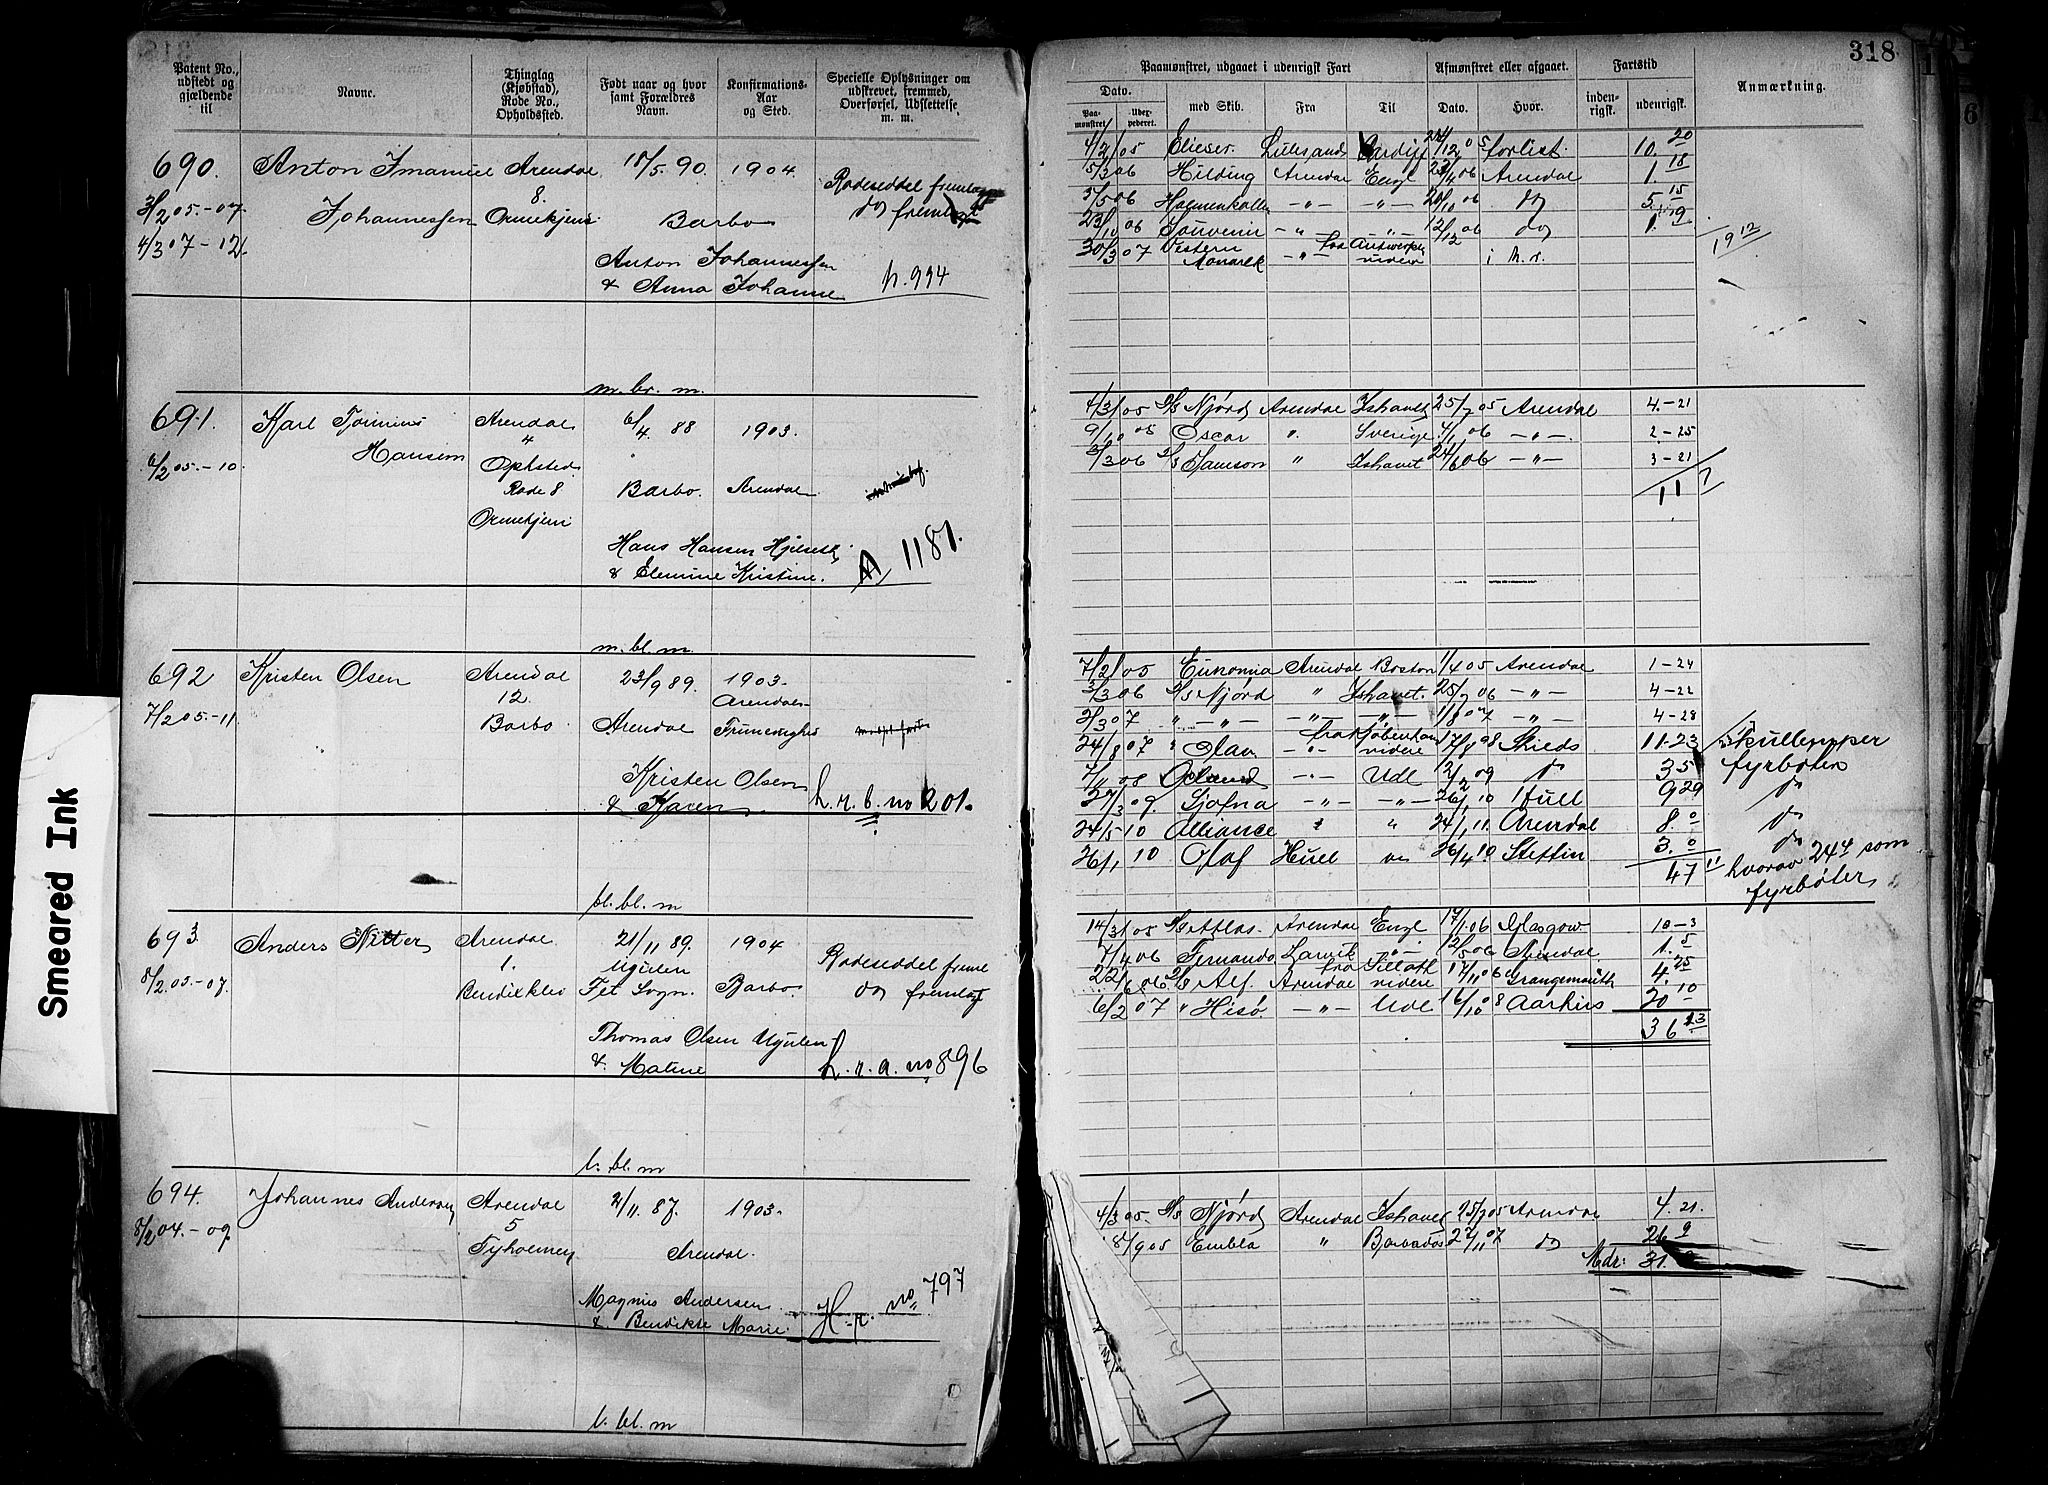 318
Patent No., udstedt og gjældende til
Navne.
Thinglag (Kjøbstad), Rode No., Opholdssted.
Født naar og hvor samt Forældres Navn.
Konfirmations-Aar og Sted.
Specielle Oplysninger om udskrevet, fremmed, Overførsel, Udslettelse m. m.
Paamønstret, udgaaet i udenrigsk Fart
Afmønstret eller afgaaet.
Fartstid
Anmærkning.
Dato.
Paamønstret
Udexpederet.
med Skib.
Fra
Til
Dato.
Hvor.
indenrigsk.
udenrigsk.
690. Anton Imanuel Arendal 15/5 90. 1904
8.
3/2 05.-07. Johannessen Ormekjern Barbo
4/3 07-12.
Rodeseddel
do
Anton Johannessen
& Anna Johanne h. 994
4/2 05 Elieser Lillesand Cardiff 12 05 forlist. 10. 20
5/3 06 Hilding Arendal Engl 23/4 06 Arendal 1. 18
5/5 06 Holmenkollen -"- -"- 20/10 06 do 5. 15
23/10 06 Souvenir -"- -"- 12/12 06 do 1. 19
30/3 07 Western Monarck -"- fra Antwerpen videre i h.r.
19 12
m. br. m.
691. Karl Arendal 6/4 88 1903.
4
6/2 05.-10 Hansen Opholdsted
Rode 8 Barbo. Arendal
Ormekjern
Hans Hansen
& Elemine Kristine. A 1181.
4/3 05 D/S Njørd Arendal Ishavet 25/7 05 Arendal 4.-21
9/10 05 Oscar " Sverige 4/1 06 -"- 2-25
3/3 06 D/S Samson " Ishavet 24/6 06 -"- 3-21
11 7
m. bl. m.
692 Kristen Olsen Arendal 23/9 89. 1903.
12. Arendals
7/2 05.-11 Barbo Arendal Trinmenighed
Kristen Olsen
& Maren h. r. b. no 201.
7/2 05 Eunomia Arendal Boston 1/4 05 Arendal 1-24
3/3 06 D/S Njørd " Ishavet. 25/7 06 -"- 4-22
2/3 07 " -"- -"- -"- 1/8 07 -"- 4-28
24/8 07 " Olav -"- fra Kjøbenhavn videre 17/8 08 Shields 11-23
7/11 08 -"- Udl 12/2 09 do 3 5
27/3 09. Sjofna -"- -"- 26/1 10 Hull 9 29
24/5-10 Alliance " " 24/1 11. Arendal 8. 0
26/1 10 Olaf Hull " 26/4 10 Stettin 3. 0
47 11
Skullemper
fyrbøter
do
do
hvorav 24 4 som
fyrbøter
bl. bl. m
693. Anders Nitter Arendal 21/11 89. 1904
1. Ugulen
8/2 05.-07. Bendixklev Fet Sogn. Barbo.
Rodeseddel
do
Thomas Olsen Ugulen
& Maline h. r. a. no 896
14/3 05 D/S Atlas. Arendal Engl 17/1 06 Glasgow 10-3
7/4 06 Fernando Larvik -"- 12/5 06 Arendal 1. 5
22/6 06 D/S Alf. Arendal fra Tilloth videre 17/11 06 Grangemouth 4. 25
6/2 07 " Hisø. -"- Udl 16/10 08 Aarhus 20 10
36 13
l. bl. m
694. Johannes Andersen Arendal 2/11 87. 1903.
5
8/2 04.-09. Tyholmen Arendal.
Magnus Andersen
& Bendikte Marie. H.r. no 797
4/3 05. D/S Njørd Arendal Ishavet 25/7 05 Arendal 4. 21.
18/9 05 Embla " Barbados 27/11 07 do 26 9
Mdr: 31.
l. bl. m
Smeared Ink